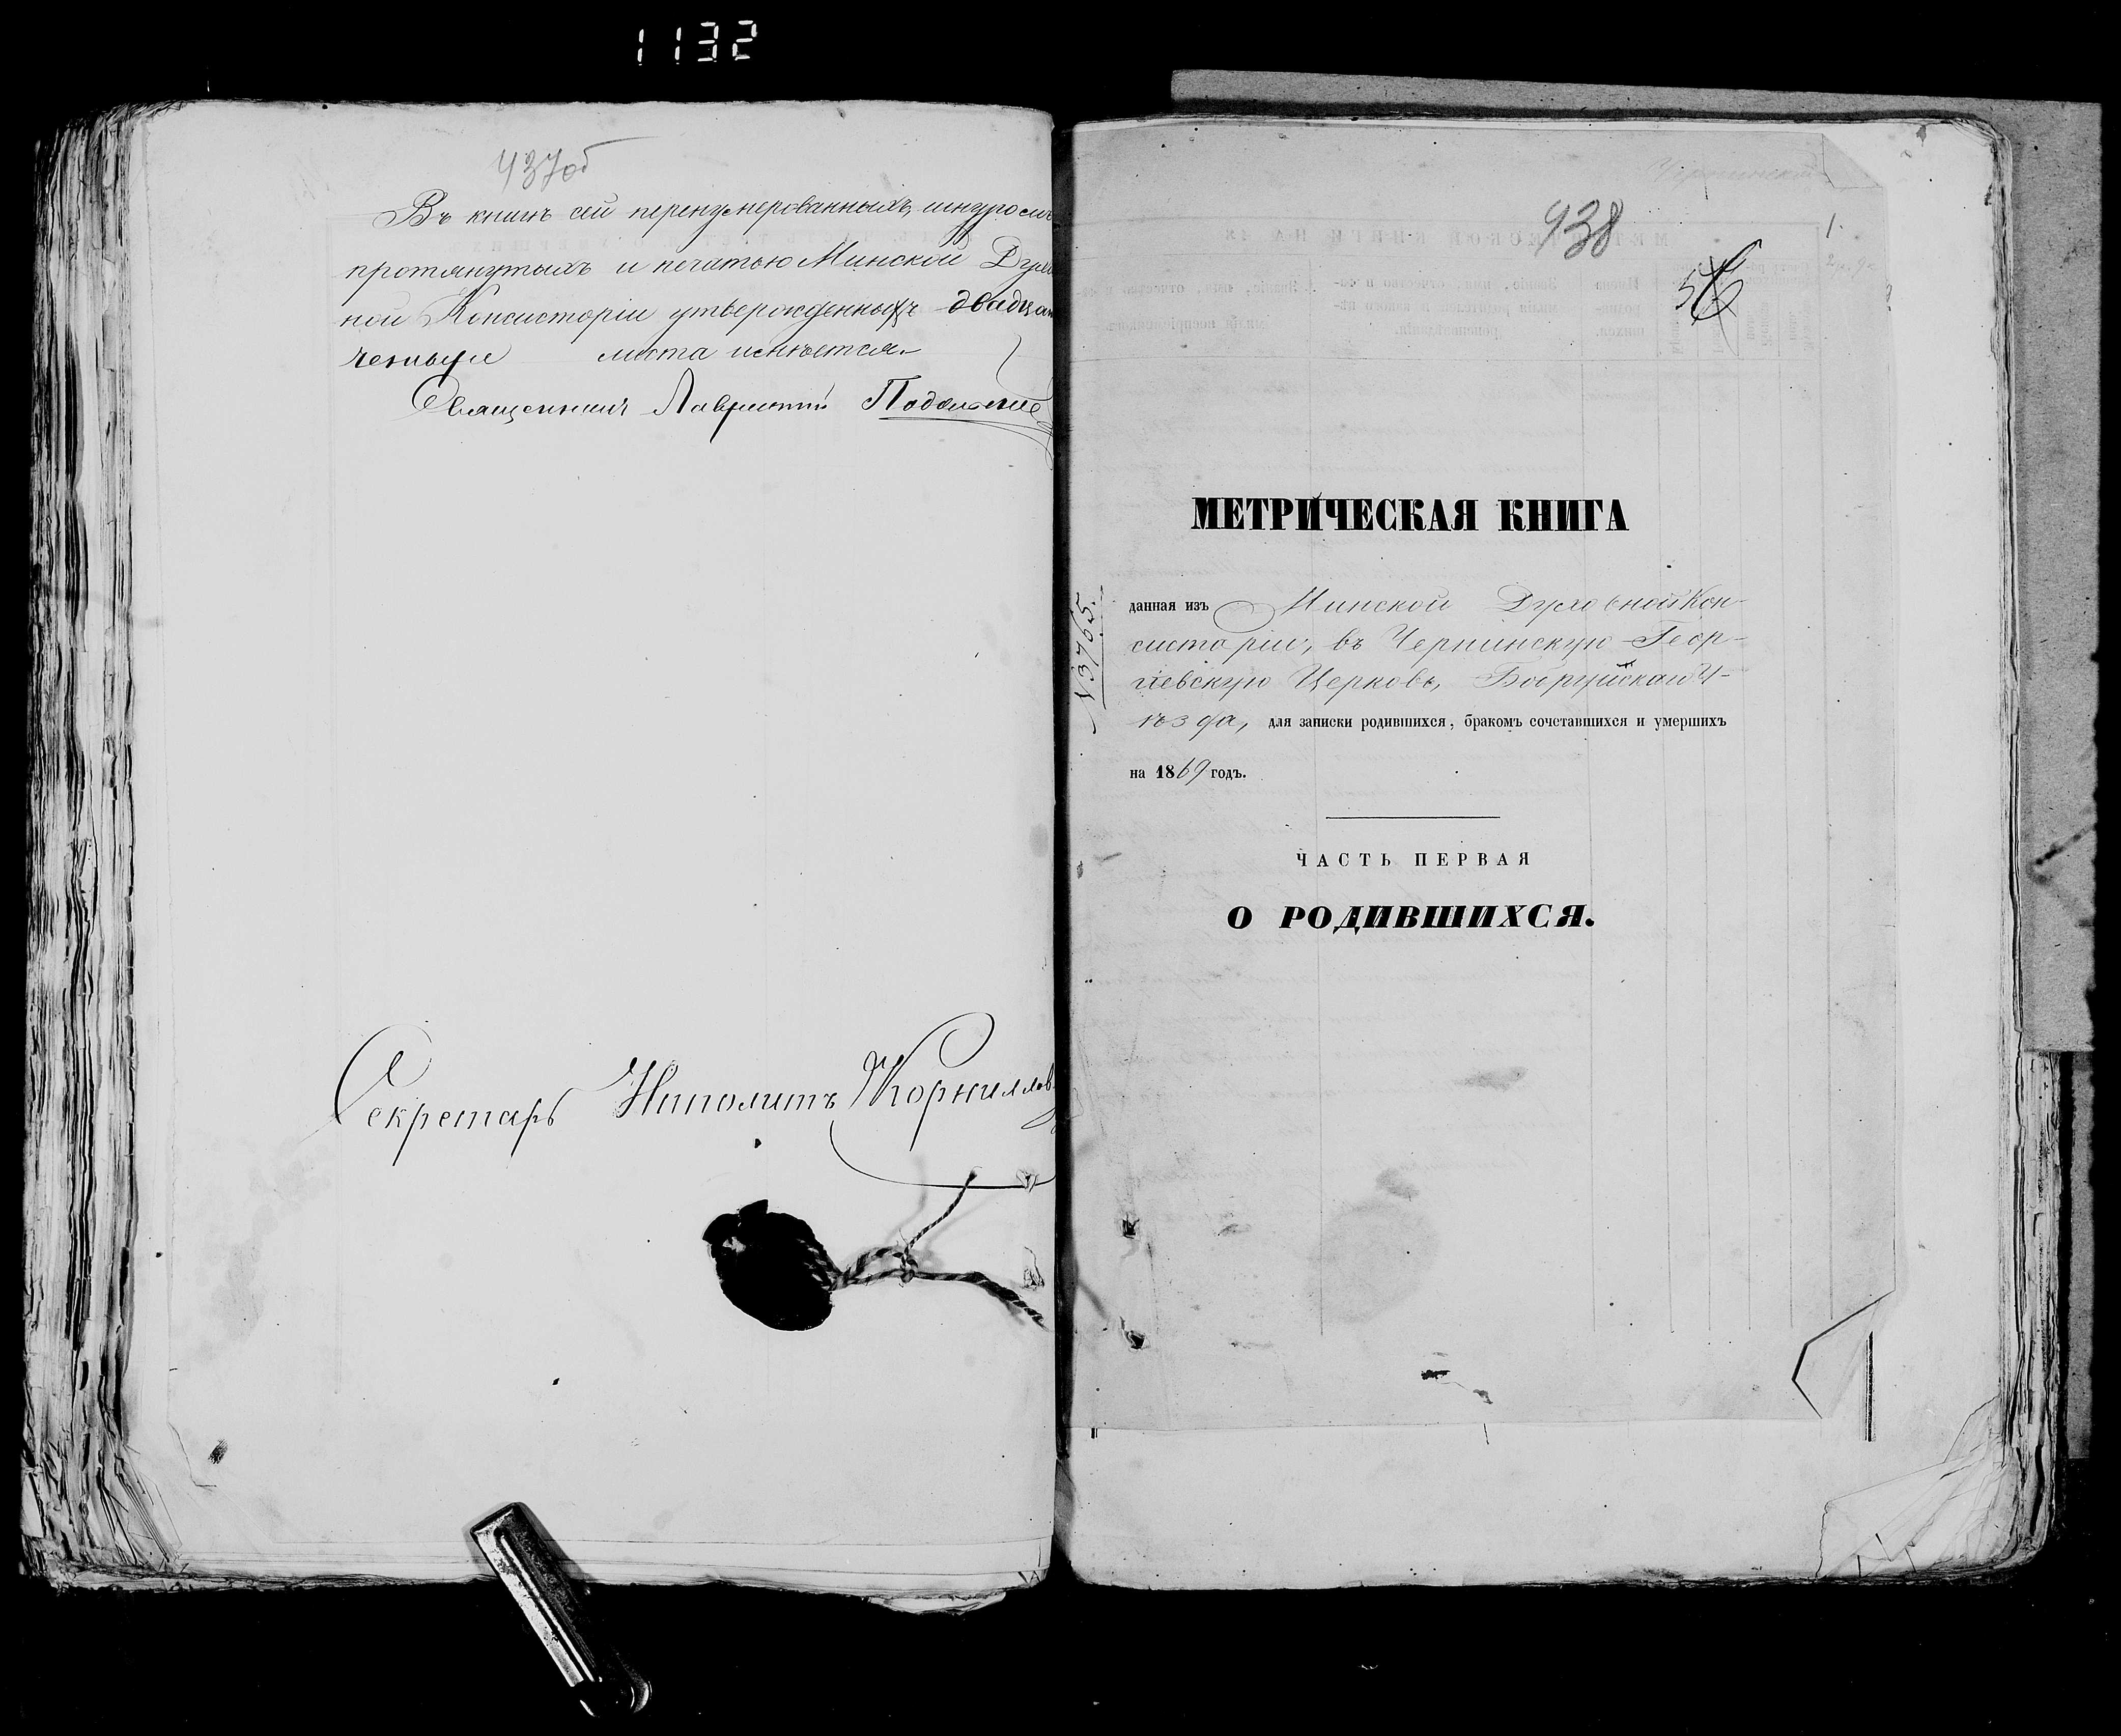 1132
437об
Въ книгѣ сей перенумерованныхъ, шнуромъ
протянутыхъ и печатью Минской Духо
ной Консисторіи утвержденныхъ двадца
четыре листа имѣется.
Священникъ Лаврентій
Секретарь Иполитъ Корнилов
938
1.
56
МЕТРИЧЕСКАЯ КНИГА
N 3765.
данная изъ Минской Духовной Кон-
систоріи, въ Чернинскую Геор-
гіевскую Церковь, Бобруйскаго У-
ѣзда, для записки родившихся, бракомъ сочетавшихся и умершихъ
на 1869 годъ.
ЧАСТЬ ПЕРВАЯ
О РОДИВШИХСЯ.